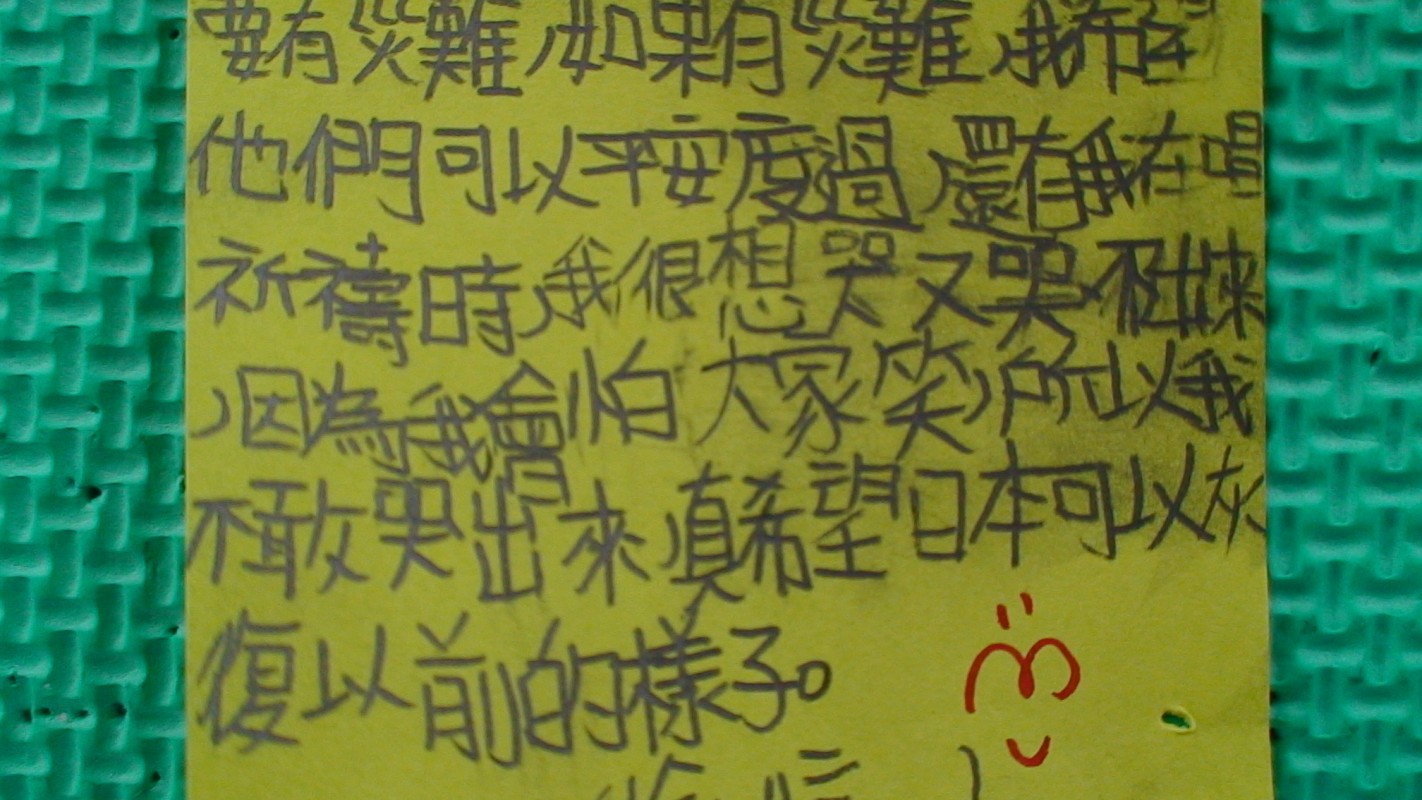 要有災難,如果有災難,我希望
他們可以平安度過,還有我在唱
祈禱時,我很想哭又哭不出來
,因為我會怕大家笑,所以我
不敢哭出來,真希望日本可以灰
復以前的樣子。